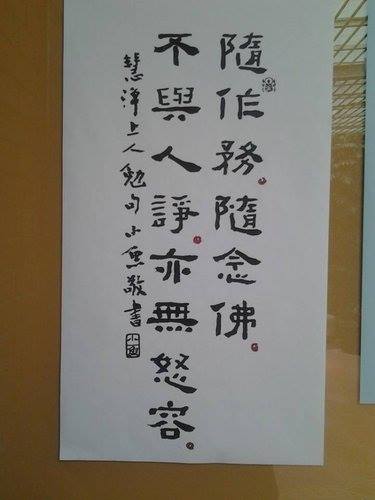 隨作務隨念佛
不與人諍亦無怒容
慧淨上人勉句小魚敬書